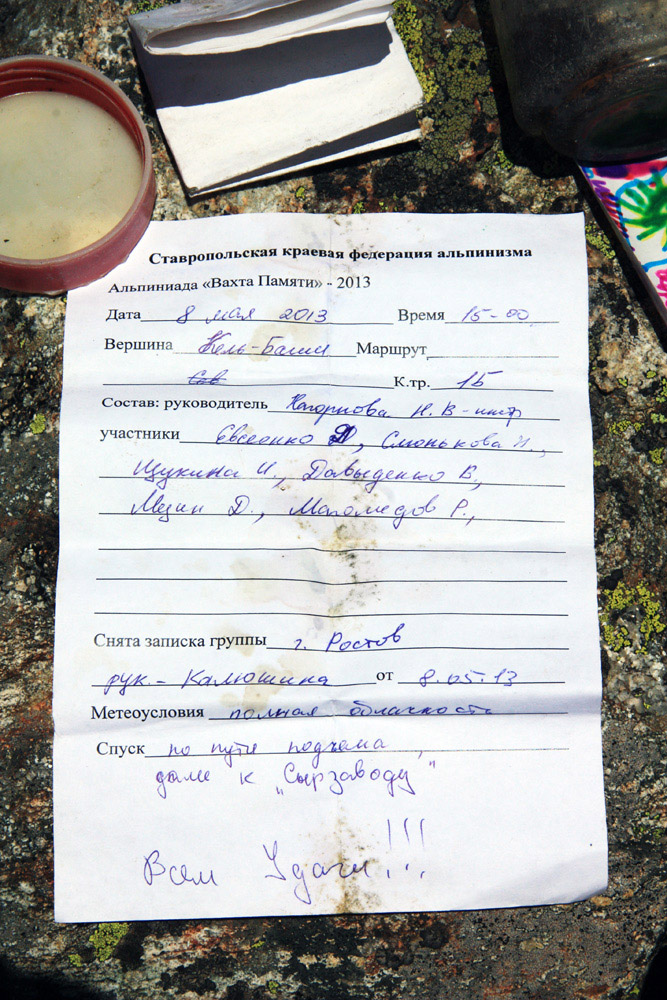 Ставропольская краевая федерация альпинизма
Альпиниада «Вахта Памяти» - 2013
Дата 8 мая 2013 Время 15-00
Вершина Кель-Баши Маршрут
К.тр. 1Б
Состав: руководитель Нагорнова Н.В-инстр
участники Евсеенко Д, Слюнькова Н.,
Щукина И., Давыденко В,
Мезин Д., Магомедов Р.,
Снята записка группы г. Ростов
рук.- Калюшина от 8.05.13
Метеоусловия полная облачность
Спуск по пути подъема,
далее к "Сырзаводу"
Всем Удачи!!!